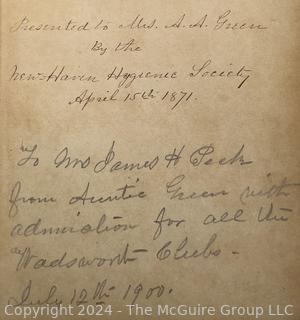 Presented to Mrs. A. A. Green
By the
New Haven Hygienic Society
April 15th 1871.
To Mrs James H Peck
from Auntie Green with
admiration for all the
"Wadsworth Clubs.-
July 12th 1900.
Copyright 2024 - The McGuire Group LLC